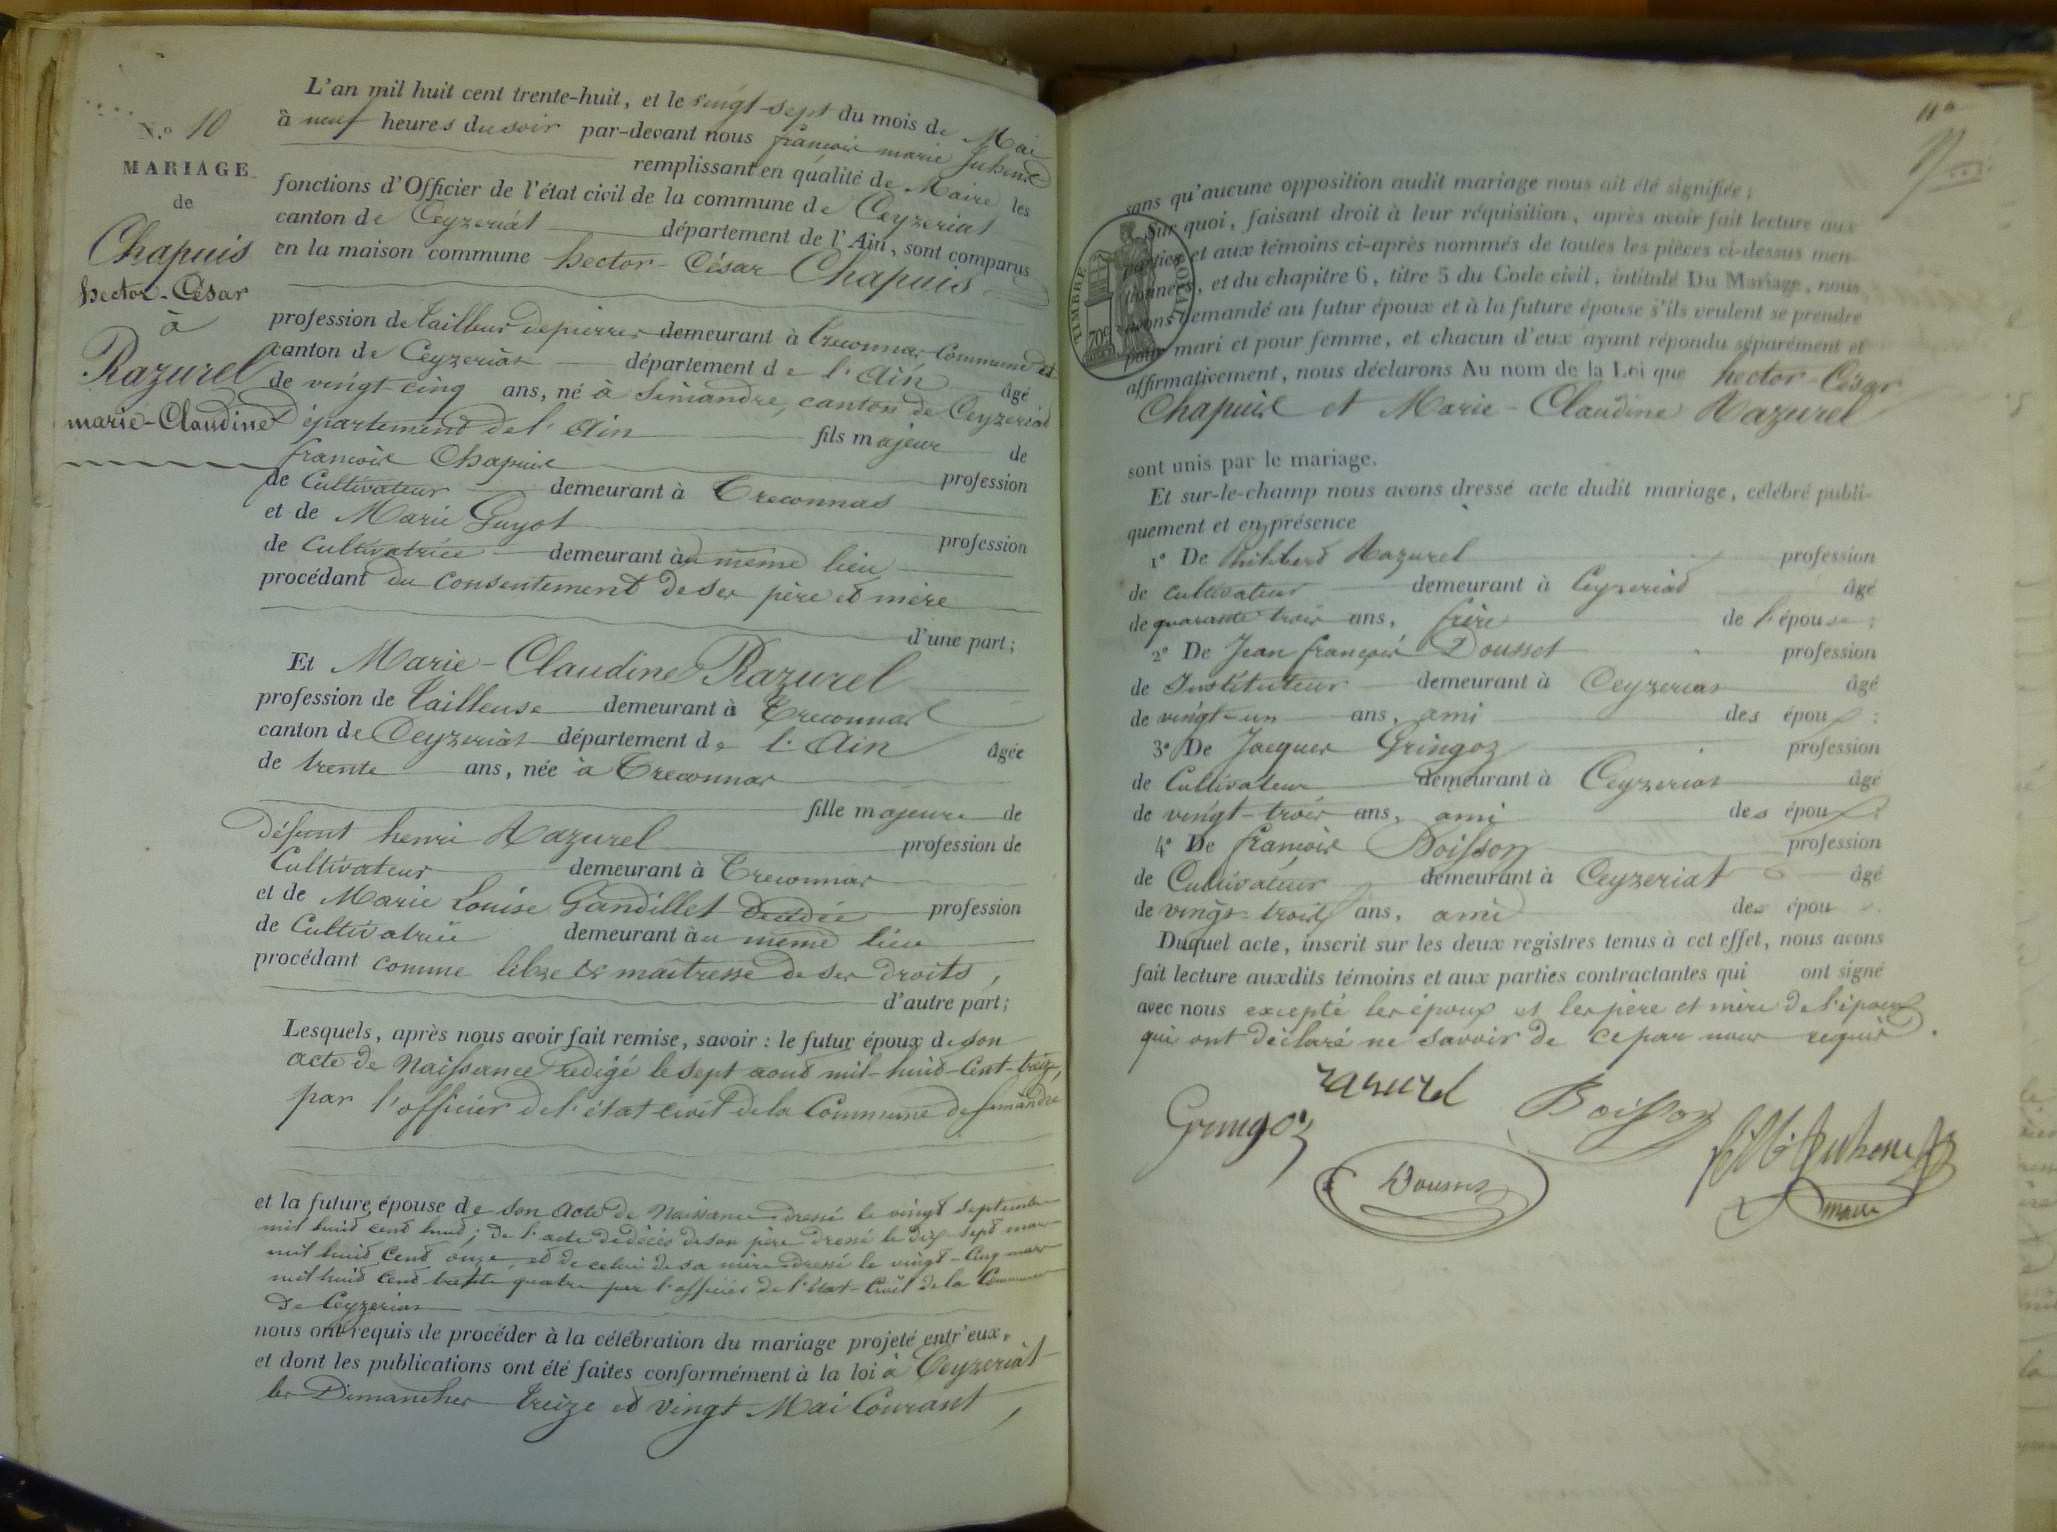 N.º 10
MARIAGE
de
Chapuis
hector-César
à
Razurel
marie-Claudine
L'an mil huit cent trente-huit, et le vingt-sept du mois de Mai
à neuf heures du soir par-devant nous françois marie
remplissant en qualité de Maire les
fonctions d'Officier de l'état civil de la commune de Ceyzeriat
canton de Ceyzeriat département de l'Ain, sont comparus
en la maison commune hector-César Chapuis
profession de tailleur de pierres demeurant à treconnas Commune et
canton de Ceyzeriat département de l'Ain âgé
de vingt cinq ans, né à Simandre, canton de Ceyzeriat
Département de l'Ain fils majeur de
francois Chapuis profession
de Cultivateur demeurant à Treconnas
et de Marie Guyot profession
de Cultivatrice demeurant au même lieu
procédant du consentement de ses père et mère
d'une part;
Et Marie-Claudine Razurel
profession de tailleuse demeurant à Treconnas
canton de Ceyzeriat département de l'Ain âgée
de trente ans, née à Treconnas
fille majeure de
Défunt henri Razurel profession de
Cultivateur demeurant à Treconnas
et de Marie Louise Gandillet Décédée profession
de Cultivatrice demeurant au même lieu
procédant comme libre et maîtresse de ses droits,
d'autre part;
Lesquels, après nous avoir fait remise, savoir : le futur époux de son
acte de Naissance redigé le sept aout mil-huit-Cent-treize,
par l'officier de l'état civil de la Commune de Simandre
et la future épouse de son acte de Naissance dressé le vingt septembre
mil huit cent huit; de l'acte de décès de son père dressé le dix sept mars
mil huit Cent onze, et de celui de sa mère dressé le vingt-cinq mars
mil huit Cent trente quatre par l'officier de l'état-Civil de la Commune
de Ceyzeriat
nous ont requis de procéder à la célébration du mariage projeté entr'eux,
et dont les publications ont été faites conformément à la loi à Ceyzeriat
les Dimanches treize et vingt Mai Courant,
11º
sans qu'aucune opposition audit mariage nous ait été signifiée;
Sur quoi, faisant droit à leur réquisition, après avoir fait lecture aux
parties et aux témoins ci-après nommés de toutes les pièces ci-dessus men-
tionnées, et du chapitre 6, titre 5 du Code civil, intitulé Du Mariage, nous
avons demandé au futur époux et à la future épouse s'ils veulent se prendre
pour mari et pour femme, et chacun d'eux ayant répondu séparément et
affirmativement, nous déclarons Au nom de la Loi que hector-César
Chapuis et Marie-Claudine Razurel
TIMBRE ROYAL
70c
sont unis par le mariage.
Et sur-le-champ nous avons dressé acte dudit mariage, célébré publi-
quement et en présence
1º De Philibert Razurel profession
de cultivateur demeurant à Ceyzeriat âgé
de quarante trois ans, frère de l'épouse;
2º De Jean françois Dousset profession
de Instituteur demeurant à Ceyzeriat âgé
de vingt-un ans, ami des époux;
3º De Jacques Gringoz profession
de Cultivateur demeurant à Ceyzeriat âgé
de vingt-trois ans, ami des époux;
4º De francois Boisson profession
de Cultivateur demeurant à Ceyzeriat âgé
de vingt-trois ans, ami des époux.
Duquel acte, inscrit sur les deux registres tenus à cet effet, nous avons
fait lecture auxdits témoins et aux parties contractantes qui ont signé
avec nous excepté les époux et les père et mère de l'époux
qui ont déclaré ne savoir de ce par nous requis.
razurel
Gringoz
Boisson
maire